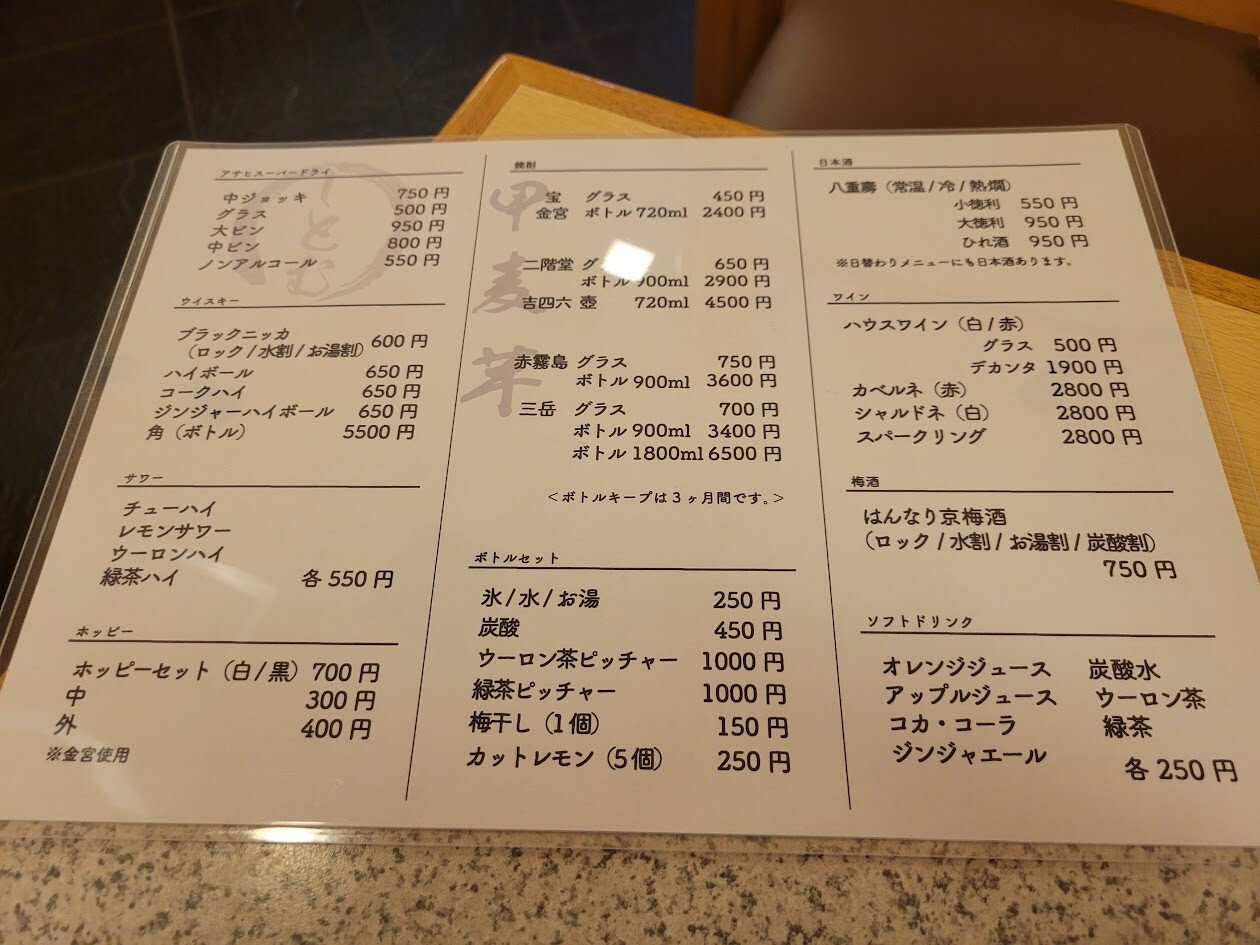 アサヒスーパードライ
中ジョッキ 750円
グラス 500円
大ビン 950円
中ビン 800円
ノンアルコール 550円
ウイスキー
ブラックニッカ 600円
(ロック/水割/お湯割)
ハイボール 650円
コークハイ 650円
ジンジャーハイボール 650円
角(ボトル) 5500円
サワー
チューハイ
レモンサワー
ウーロンハイ
緑茶ハイ 各550円
ホッピー
ホッピーセット(白/黒) 700円
中 300円
外 400円
※金宮使用
焼酎
甲
宝 グラス 450円
金宮 ボトル720ml 2400円
麦
二階堂 グ 650円
ボトル900ml 2900円
吉四六 壺 720ml 4500円
芋
赤霧島 グラス 750円
ボトル900ml 3600円
三岳 グラス 700円
ボトル900ml 3400円
ボトル1800ml 6500円
<ボトルキープは3ヶ月間です。>
ボトルセット
氷/水/お湯 250円
炭酸 450円
ウーロン茶ピッチャー 1000円
緑茶ピッチャー 1000円
梅干し(1個) 150円
カットレモン(5個) 250円
日本酒
八重壽(常温/冷/熱燗)
小徳利 550円
大徳利 950円
ひれ酒 950円
※日替わりメニューにも日本酒あります。
ワイン
ハウスワイン(白/赤)
グラス 500円
デカンタ 1900円
カベルネ(赤) 2800円
シャルドネ(白) 2800円
スパークリング 2800円
梅酒
はんなり京梅酒
(ロック/水割/お湯割/炭酸割)
750円
ソフトドリンク
オレンジジュース 炭酸水
アップルジュース ウーロン茶
コカ・コーラ 緑茶
ジンジャエール
各250円